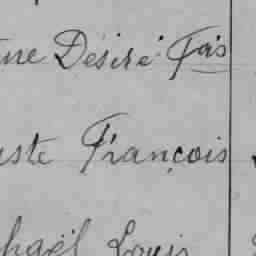 ine Désiré Fçis
uste François
phaël Louis